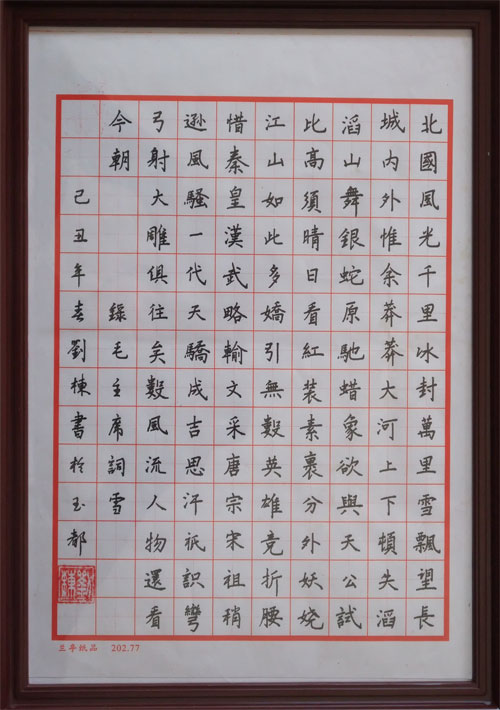 北國風光千里冰封萬里雪飄望長
城内外惟余莽莽大河上下頓失滔
滔山舞銀蛇原馳蜡象欲與天公試
比高須晴日看紅装素裹分外妖娆
江山如此多嬌引無數英雄竞折腰
惜秦皇漢武略輸文采唐宗宋祖稍
遜風騷一代天驕成吉思汗祇識彎
弓射大雕俱往矣數風流人物還看
今朝 録毛主席詞雪
己丑年春劉棟書於玉都
兰亭纸品 202.77